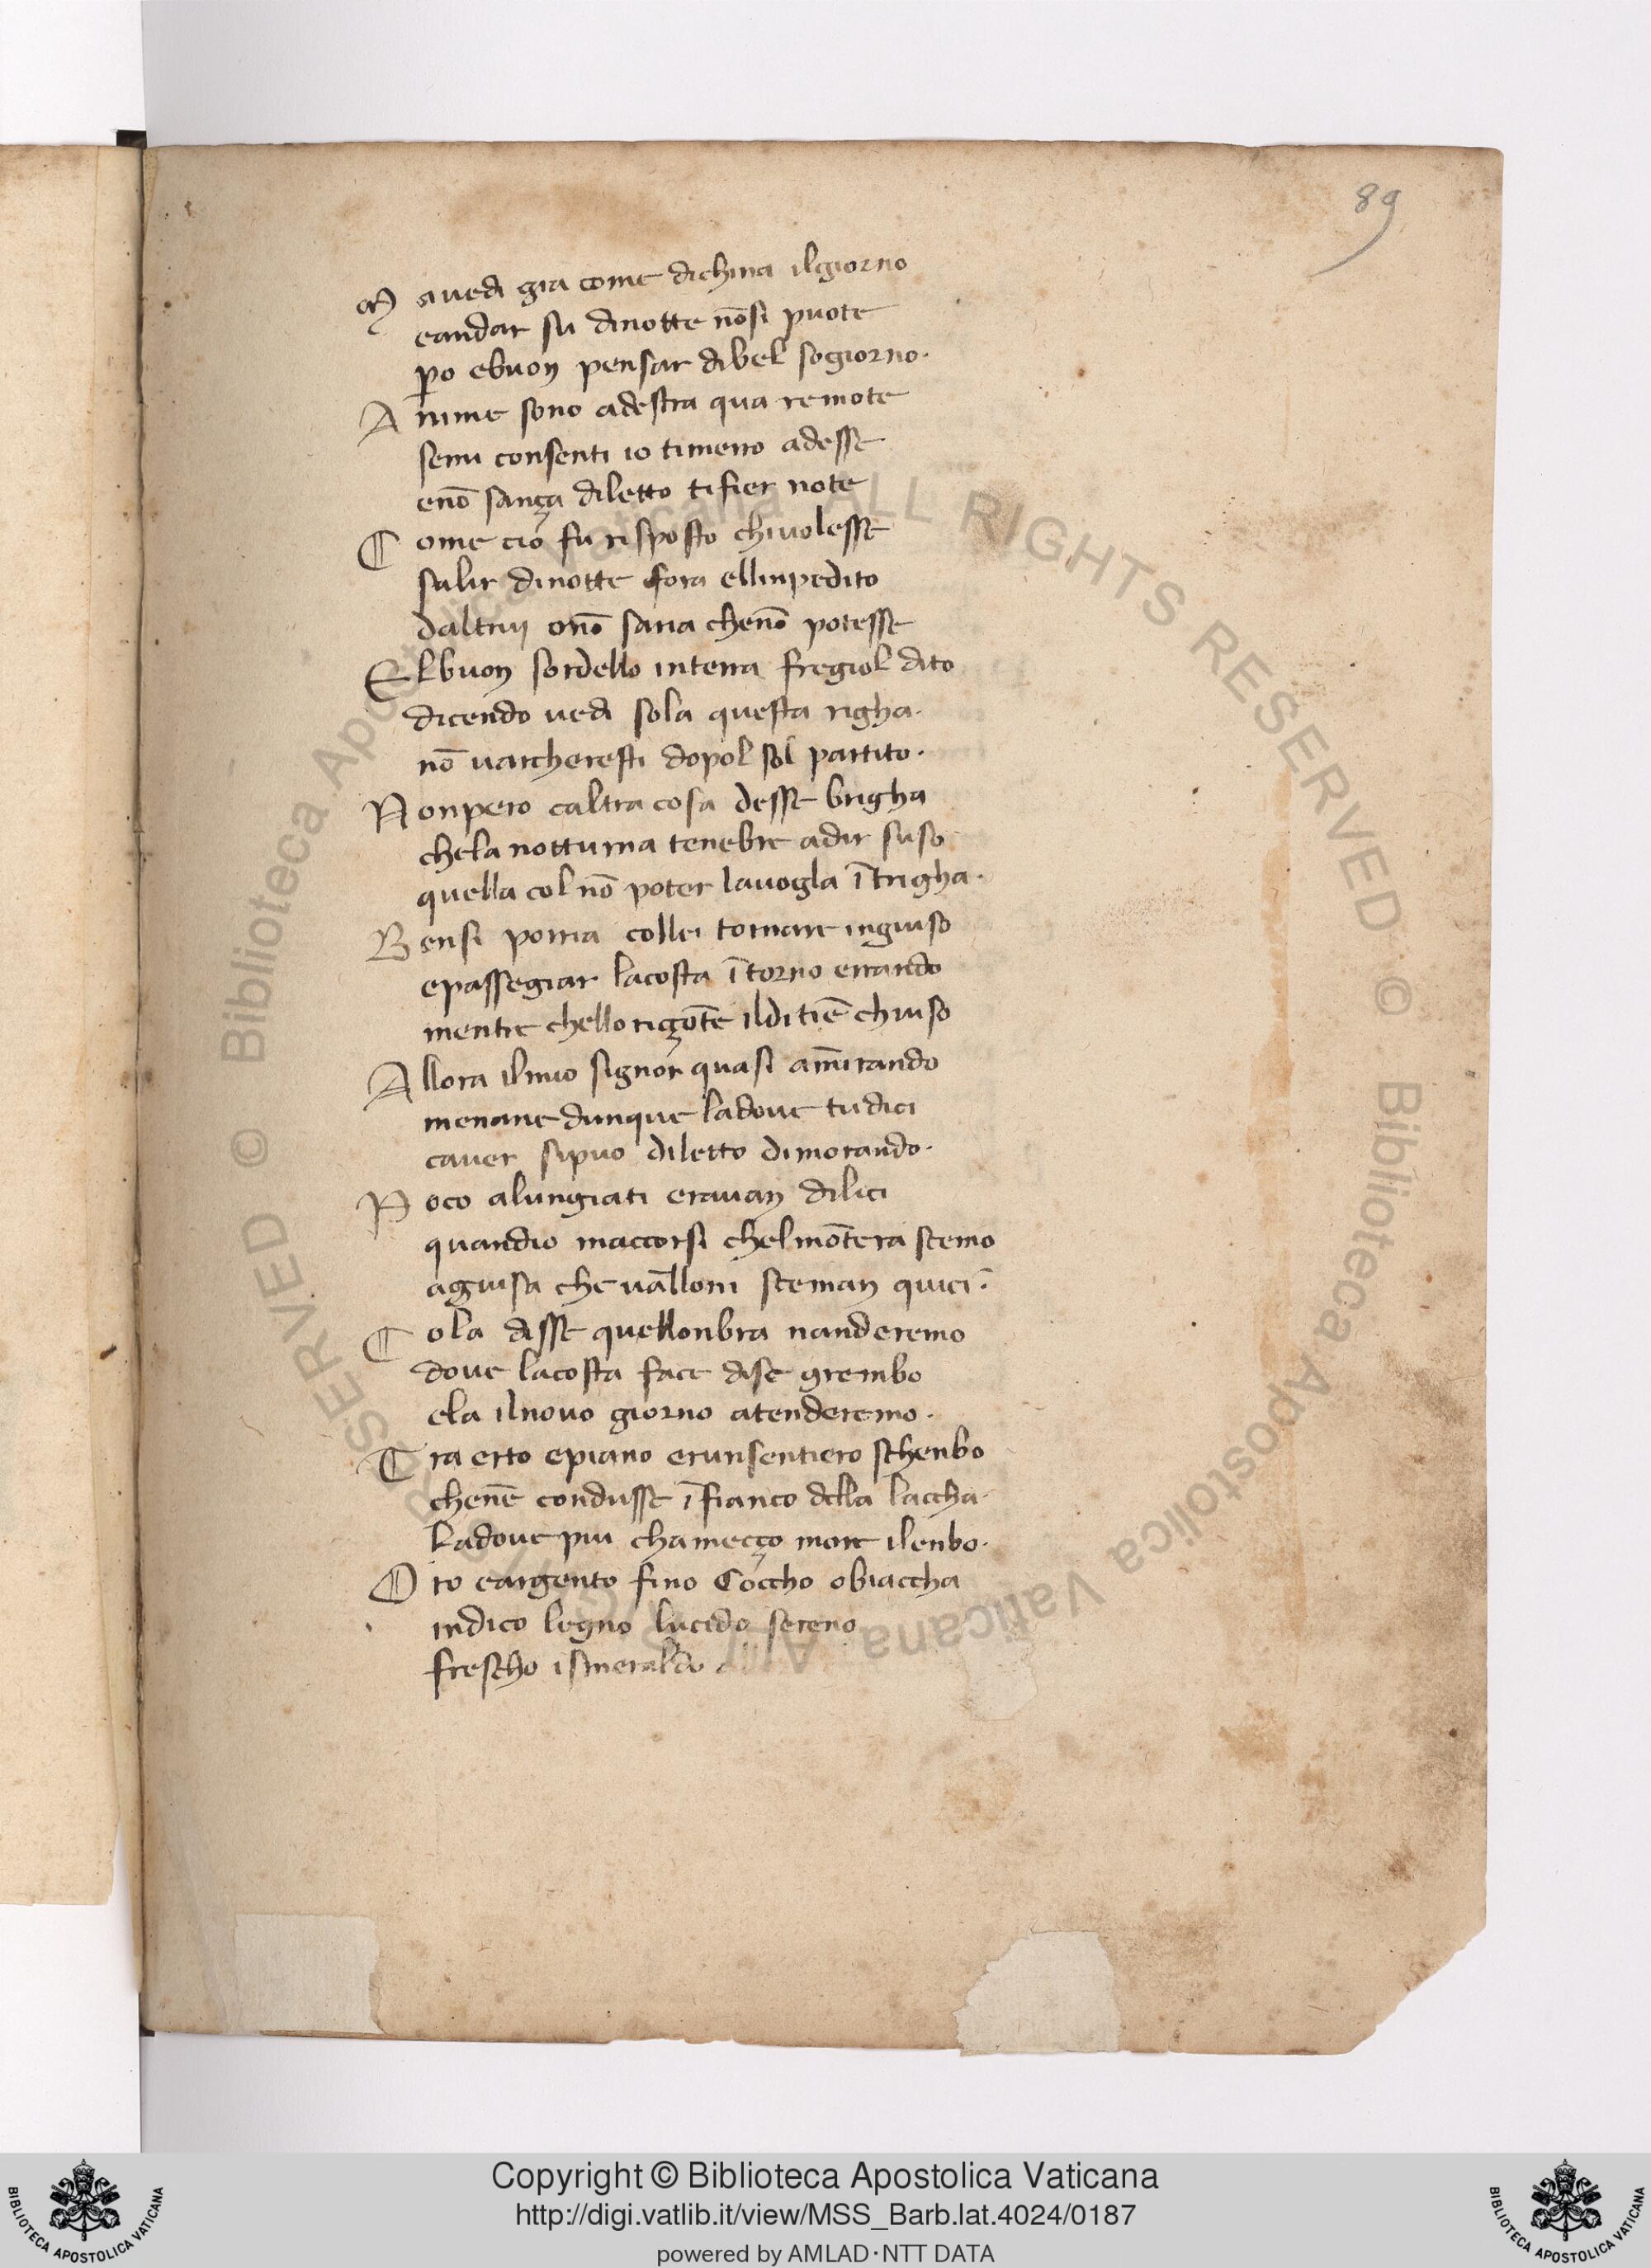 89
M a uedi gia come dichina ilgiorno
eandar su dinotte nōsi puote
ꝑo ebuon pensar dibel sogiorno.
A nime sono adestra qua remote
semi consenti io timerro adesse
enō sança diletto tifier note
C ome cio fu risposto chiuolesse
salir dinotte fora ellinpedito
daltruj onō saria chenō potesse
E lbuon sordello interra fregiol dito
dicendo uedi sola questa righa.
nō uarcheresti dopol sol partito.
N onpero caltra cosa desse brigha
chela notturna tenebre adir suso
quella col nō poter lauogla ītrigha.
B ensi porria collei tornare ingiuso
epassegiar lacosta ītorno errando
mentre chellorigōte ildi tiē chiuso
A llora ilmio signor quasi am̄irando
menane dunque ladoue tudici
cauer sipuo diletto dimorando.
P oco alungiati erauan dilici
quandio maccorsi chelmōtera scemo
aguisa che uālloni sceman quici.
C ola disse quellonbra nanderemo
doue lacosta face dise grembo
ela ilnouo giorno atenderemo.
T ra erto epiano erunsentiero schenbo
chenē condusse īfianco della laccha.
Ladoue piu chameçço more ilenbo.
O ro eargento fino Coccho obiaccha
indico legno lucido sereno
frescho ismeraldo
Biblioteca Apostolica Vaticana ALL RIGHTS RESERVED © Biblioteca Apostolica Vaticana ALL RIGHTS RESERVED ©
Copyright © Biblioteca Apostolica Vaticana
http://digi.vatlib.it/view/MSS_Barb.lat.4024/0187
powered by AMLAD·NTT DATA
BIBLIOTECA APOSTOLICA VATICANA
BIBLIOTECA APOSTOLICA VATICANA